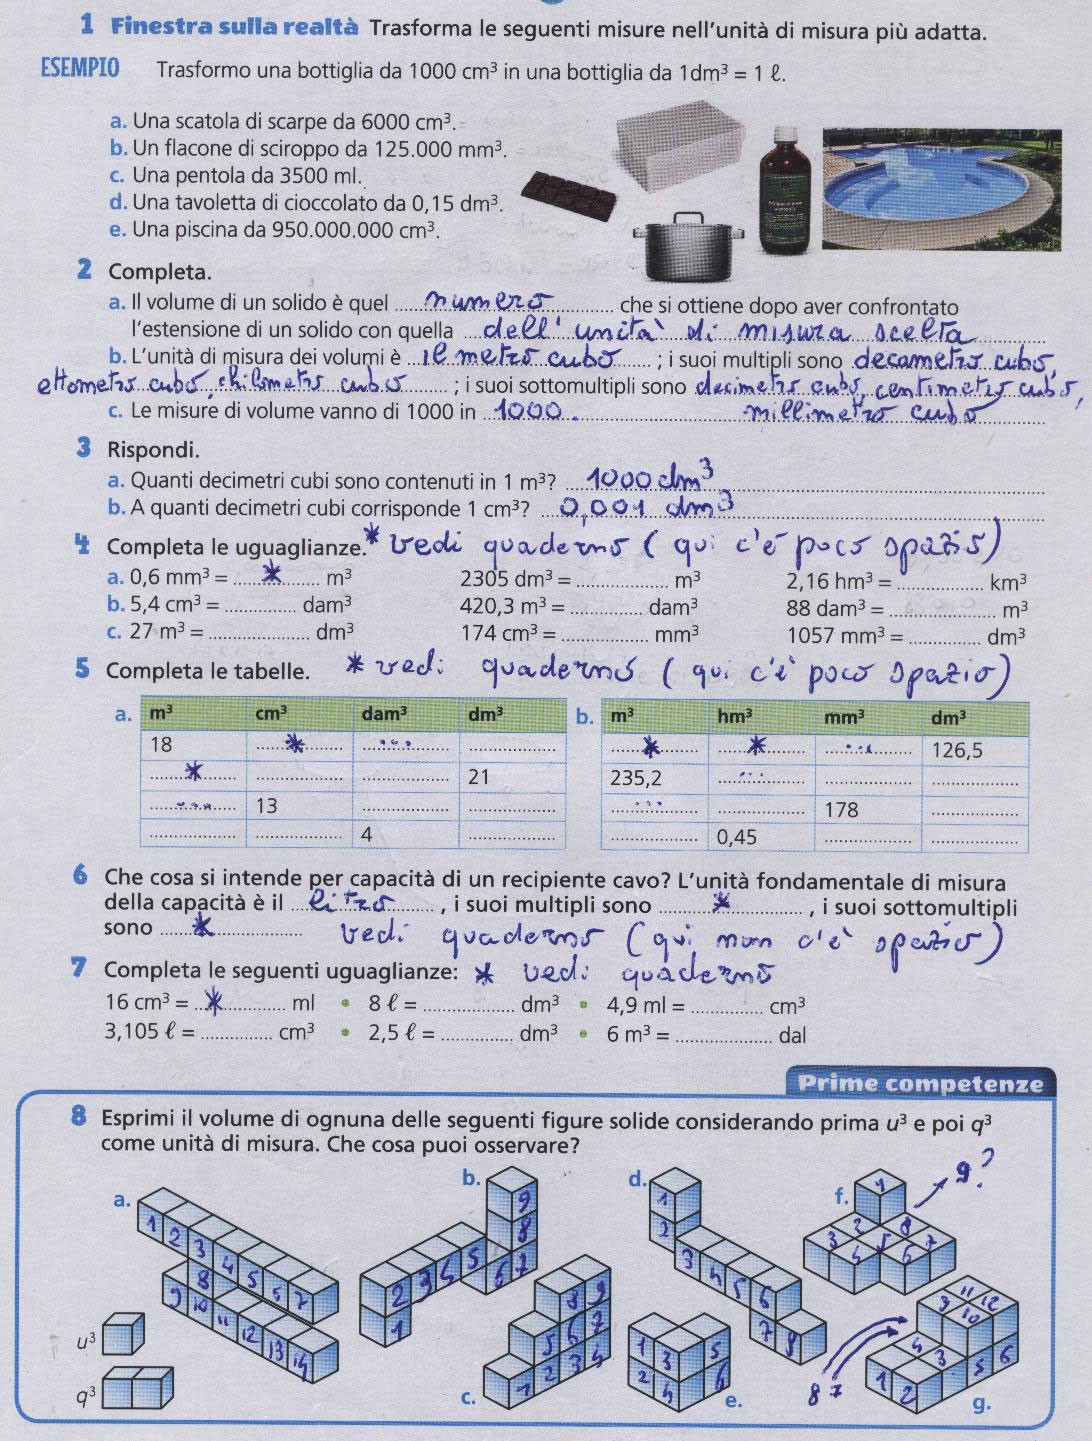 1 Finestra sulla realtà Trasforma le seguenti misure nell'unità di misura più adatta.
ESEMPIO Trasformo una bottiglia da 1000 cm³ in una bottiglia da 1dm³ = 1 ℓ.
a. Una scatola di scarpe da 6000 cm³.
b. Un flacone di sciroppo da 125.000 mm³.
c. Una pentola da 3500 ml.
d. Una tavoletta di cioccolato da 0,15 dm³.
e. Una piscina da 950.000.000 cm³.
2 Completa.
a. Il volume di un solido è quel numero che si ottiene dopo aver confrontato
l'estensione di un solido con quella dell'unità di misura scelta
b. L'unità di misura dei volumi è il metro cubo ; i suoi multipli sono decametro cubo,
ettometro cubo, chilometro cubo ; i suoi sottomultipli sono decimetro cubo, centimetro cubo,
c. Le misure di volume vanno di 1000 in 1000. millimetro cubo
3 Rispondi.
a. Quanti decimetri cubi sono contenuti in 1 m³? 1000 dm³
b. A quanti decimetri cubi corrisponde 1 cm³? 0,001 dm³
4 Completa le uguaglianze. * vedi quaderno (qui c'è poco spazio)
a. 0,6 mm³ = ....*.... m³ 2305 dm³ = ............ m³ 2,16 hm³ = ............ km³
b. 5,4 cm³ = ............ dam³ 420,3 m³ = ............ dam³ 88 dam³ = ............ m³
c. 27 m³ = ............ dm³ 174 cm³ = ............ mm³ 1057 mm³ = ............ dm³
5 Completa le tabelle. * vedi quaderno (qui c'è poco spazio)
a. m³ cm³ dam³ dm³ b. m³ hm³ mm³ dm³
18 * ... ............ * * ... 126,5
* ............ ............ 21 235,2 ... ............ ............
... 13 ............ ............ ... ............ 178 ............
............ ............ 4 ............ ............ 0,45 ............ ............
6 Che cosa si intende per capacità di un recipiente cavo? L'unità fondamentale di misura
della capacità è il litro , i suoi multipli sono ....*.... , i suoi sottomultipli
sono ....*.... vedi quaderno (qui non c'è spazio)
7 Completa le seguenti uguaglianze: * vedi quaderno
16 cm³ = ..*.. ml • 8 ℓ = ............ dm³ • 4,9 ml = ............ cm³
3,105 ℓ = ............ cm³ • 2,5 ℓ = ............ dm³ • 6 m³ = ............ dal
Prime competenze
8 Esprimi il volume di ognuna delle seguenti figure solide considerando prima u³ e poi q³
come unità di misura. Che cosa puoi osservare?
a. 1 2 3 4 5 6 7 8 9 10 11 12 13 14
b. 1 2 3 4 5 6 7 8 9
c. 1 2 3 4 5 6 7 8 9
d. 1 2 3 4 5 6 7 8
e. 1 2 3 4 5 6
f. 1 2 3 4 5 6 7 8 9?
g. 1 2 3 4 5 6 8 7 9 10 11 12
u³
q³